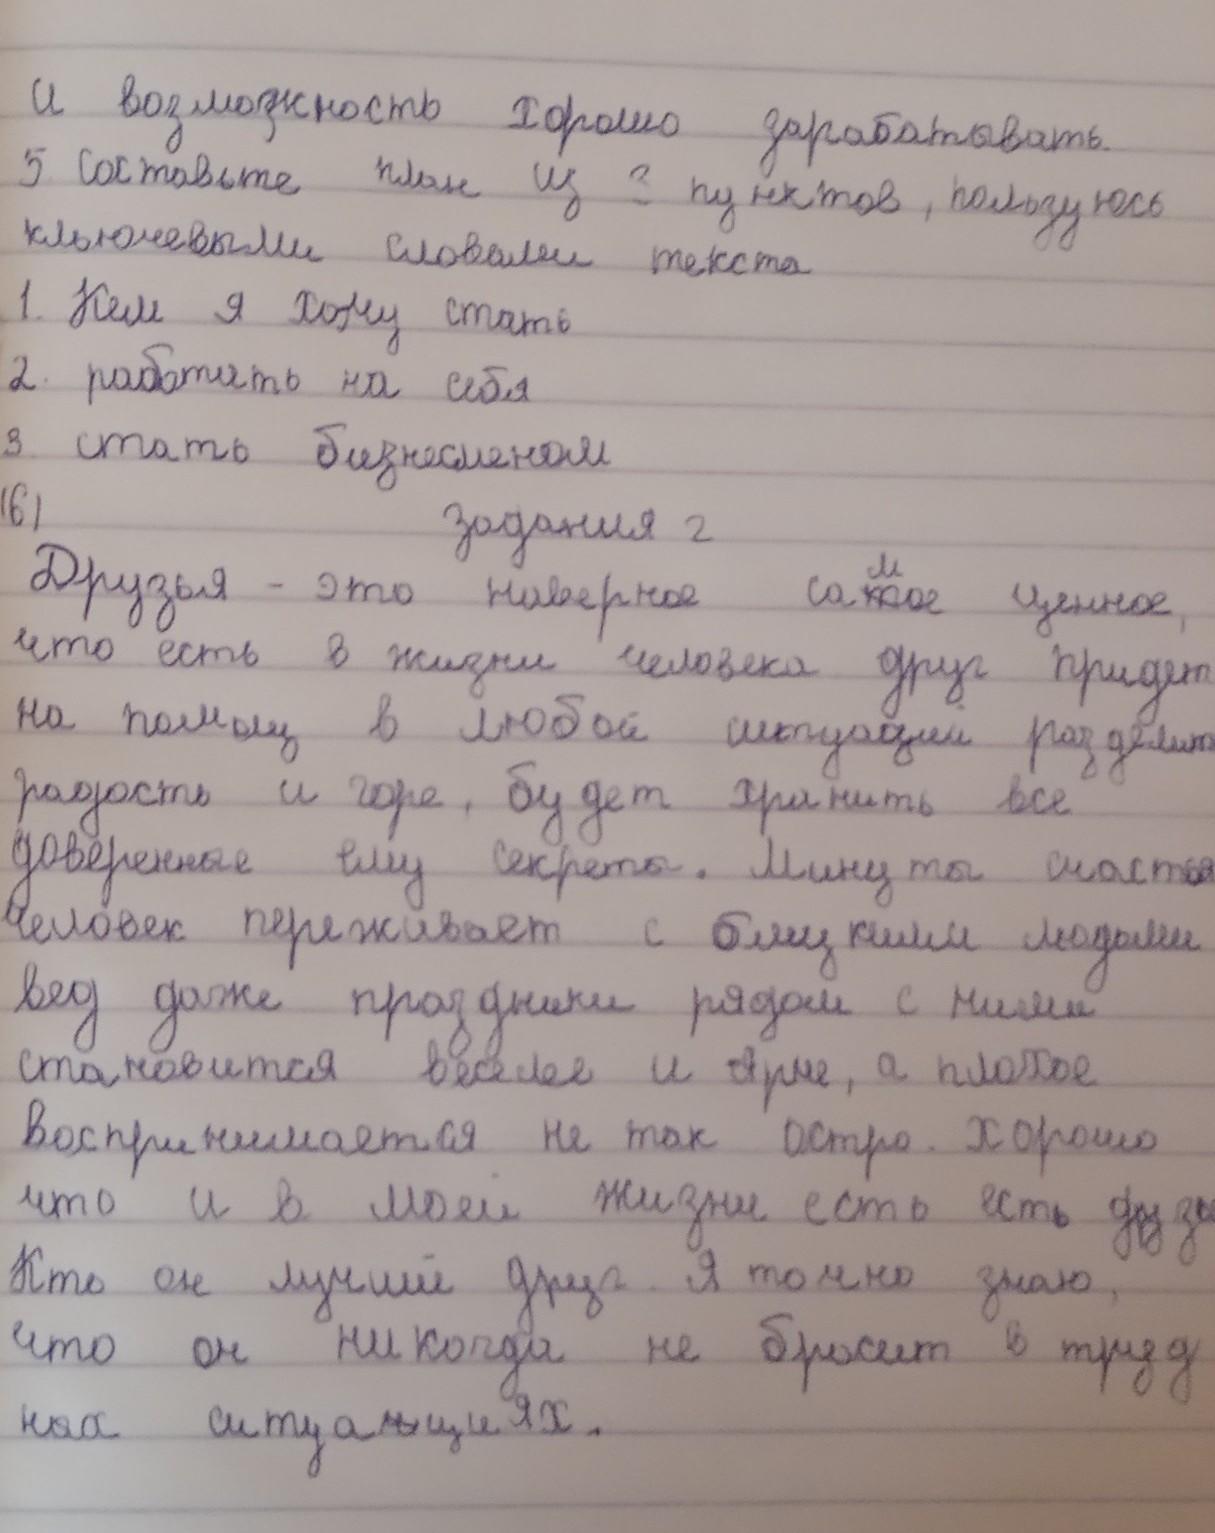 и возможность хорошо зарабатывать.
5 Составьте план из 3 пунктов, пользуюсь
ключевыми словами текста
1. Кем я хочу стать
2. работать на себя
3 стать бизнесменом
(6) задания 2
Друзья - это наверное самое ценное,
что есть в жизни человека друг придет
на помощ в любой ситуаций разделит
радость и горе, будет хранить все
доверенные ему секреты. Минуты счастья
человек переживает с близкими людьми
вед даже праздники рядом с ними
становится веселее и ярче, а плохое
воспринимается не так остро. Хорошо
что и в моей жизни есть есть друзь
Кто он лучший друг. Я точно знаю,
что он никогда не бросит в труд
нах ситуациях.